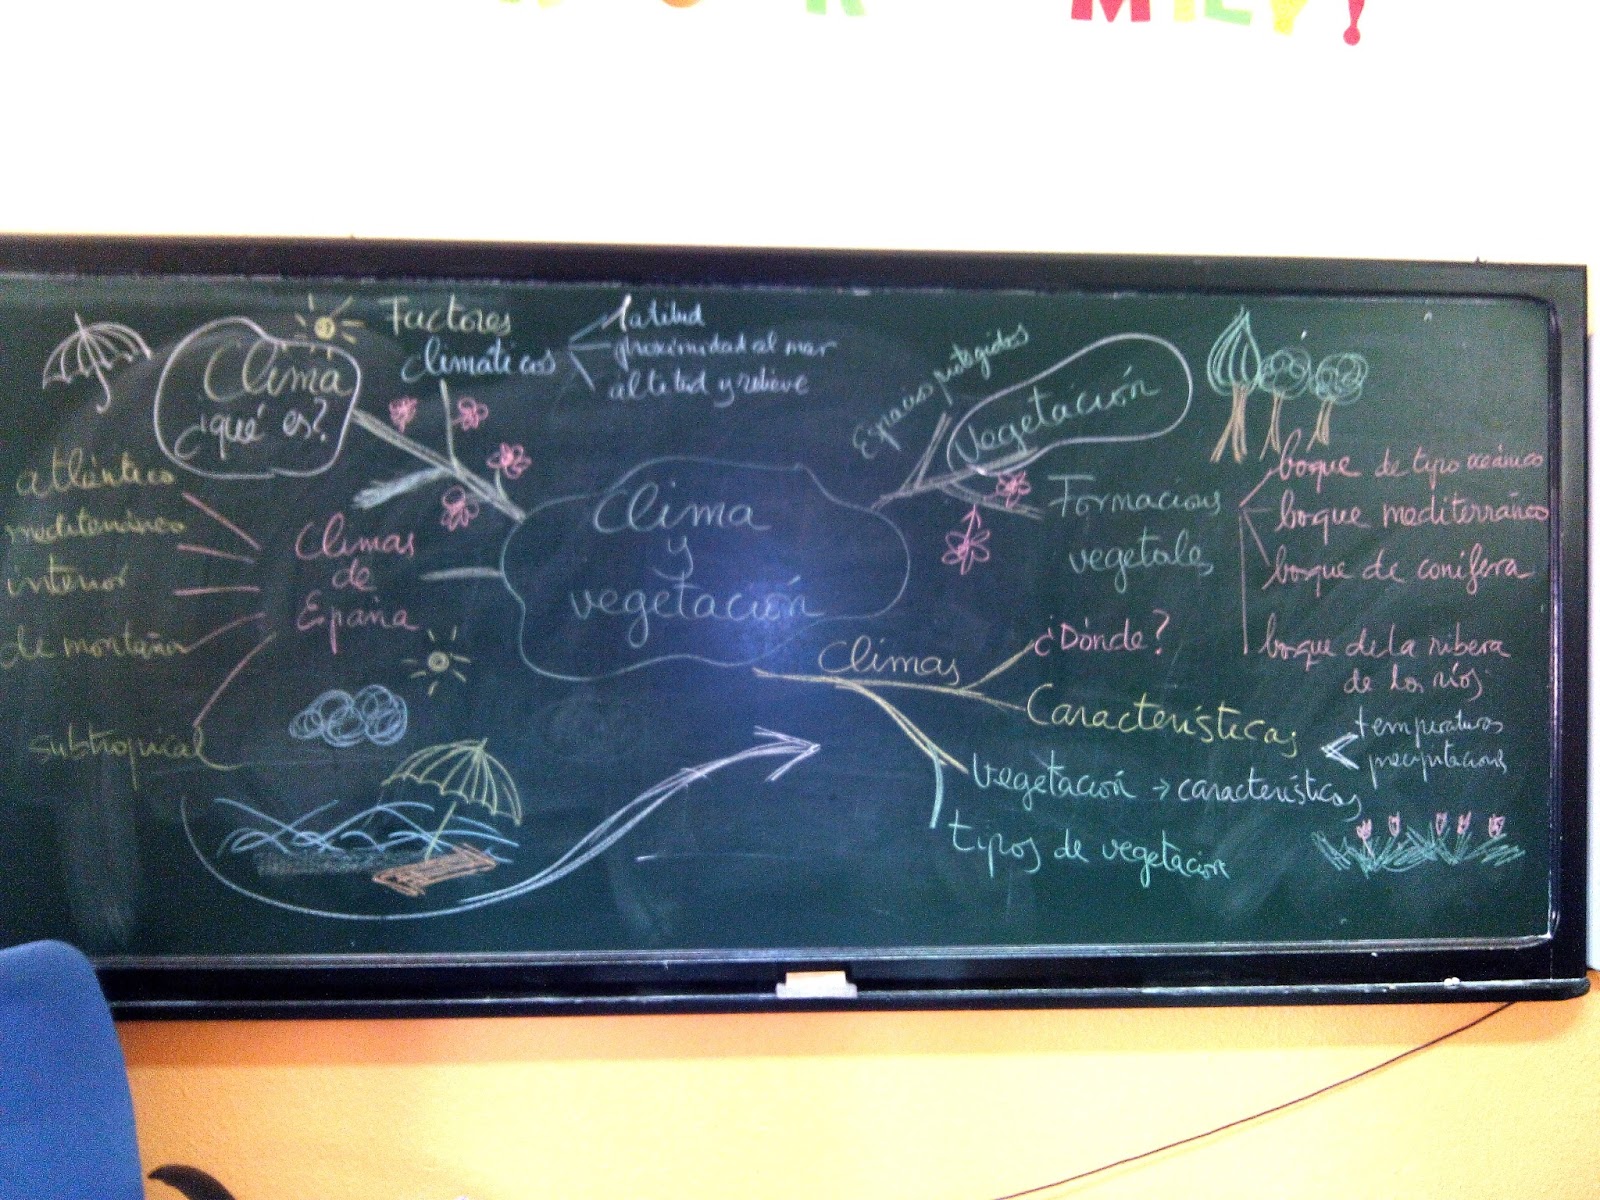 MILY!
Clima
¿qué es?
Factores
climáticos
latitud
proximidad al mar
altitud y relieve
Clima
y
vegetación
Climas
de
España
atlántico
mediterráneo
interior
de montaña
subtropical
Espacios protegidos
Vegetación
Formaciones
vegetales
boque de tipo oceánico
boque mediterráneo
bosque de conifera
bosque de la ribera
de los ríos
Climas
¿Dónde?
Características
temperaturas
precipitaciones
Vegetación → características
tipos de vegetación